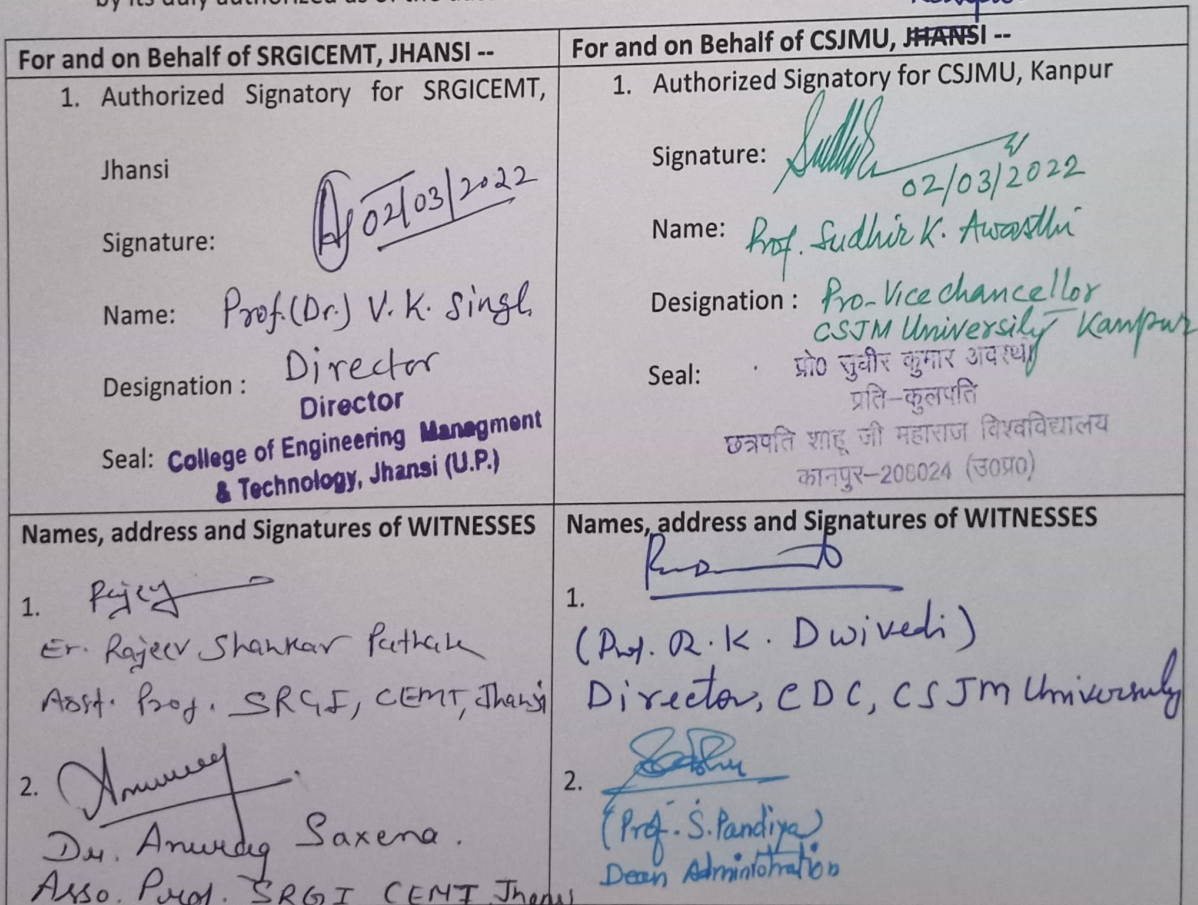 by its duly authorized as of the
For and on Behalf of SRGICEMT, JHANSI --
1. Authorized Signatory for SRGICEMT,
Jhansi
Signature: 02/03/2022
Name: Prof.(Dr.) V. K. Singh
Designation : Director
Director
Seal: College of Engineering Managment
& Technology, Jhansi (U.P.)
For and on Behalf of CSJMU, JHANSI --
1. Authorized Signatory for CSJMU, Kanpur
Signature: 02/03/2022
Name: Prof. Sudhir K. Awasthi
Designation : Pro-Vice chancellor
CSJM University Kanpur
Seal: प्रो0 सुधीर कुमार अवस्थी
प्रति-कुलपति
छत्रपति शाहू जी महाराज विश्वविद्यालय
कानपुर-208024 (उ0प्र0)
Names, address and Signatures of WITNESSES
1.
Er. Rajeev Shankar Pathak
Asst. Prof. SRGI, CEMT, Jhansi
2.
Dr. Anurag Saxena.
Asso. Prof. SRGI CEMT Jhansi
Names, address and Signatures of WITNESSES
1.
(Prof. R. K. Dwivedi)
Director, CDC, CSJM University
2.
(Prof. S. Pandiya)
Dean Administration